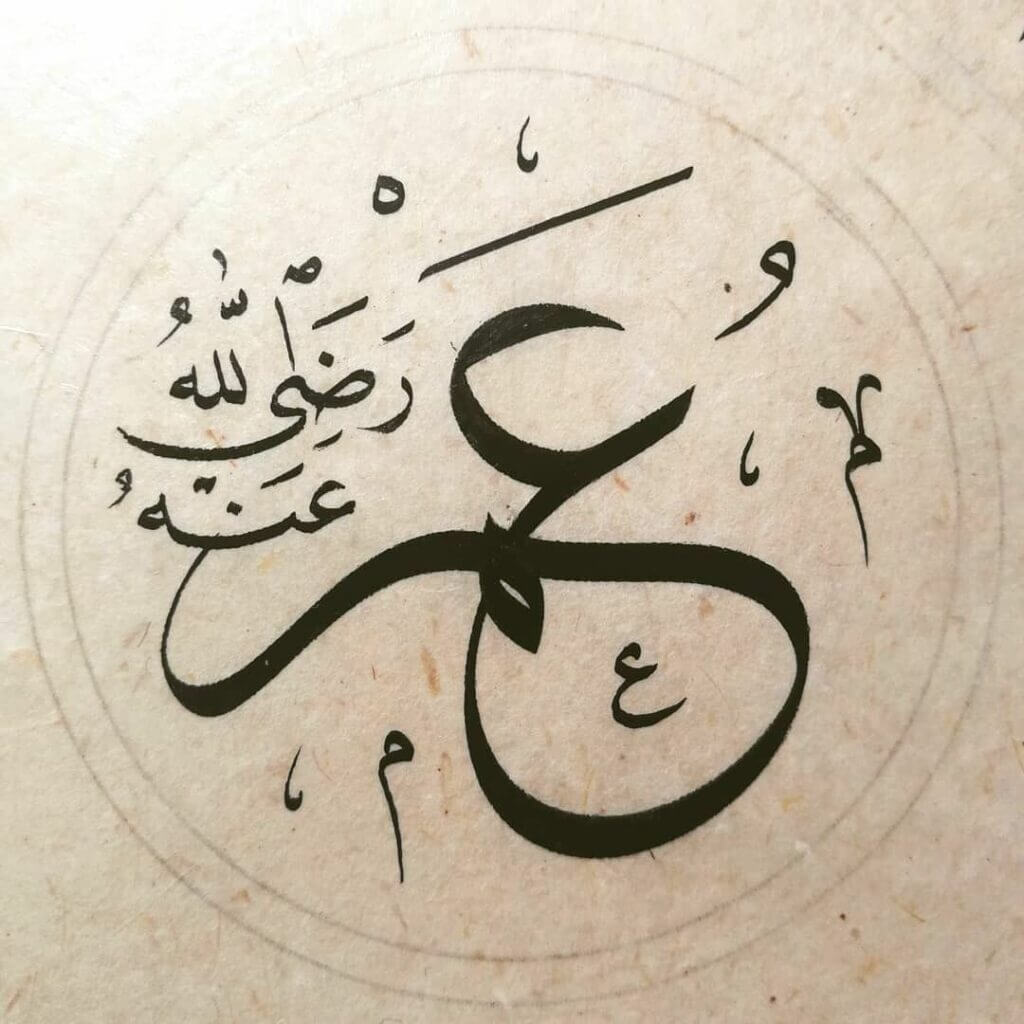 عُمَرْ
رَضِىَ اللّٰهُ
عَنْهُ